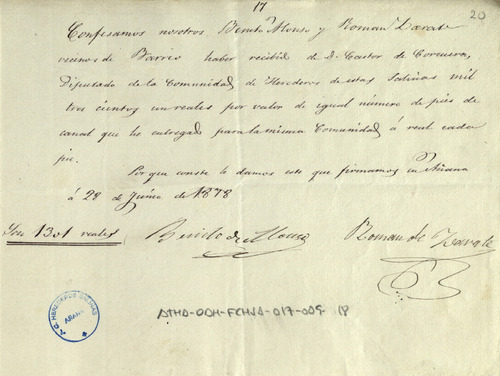 17
20
Confesamos nosotros Benito Alonso y Roman Zarate
vecinos de Barrio haber recibido de D. Castor de Corcuera,
Diputado de la Comunidad de Herederos de estas Salinas mil
tres cientos un reales por valor de igual número de piés de
canal que he entregado para la misma Comunidad á real cada
pie.
Para que conste lo damos este que firmamos en Añana
á 28 de Junio de 1878
Son 1301 reales
Benito de Alonso
Roman de Zarate
HEREDEROS SALINAS
AÑANA
ATHA-DAH-FCHVA-017-009-18